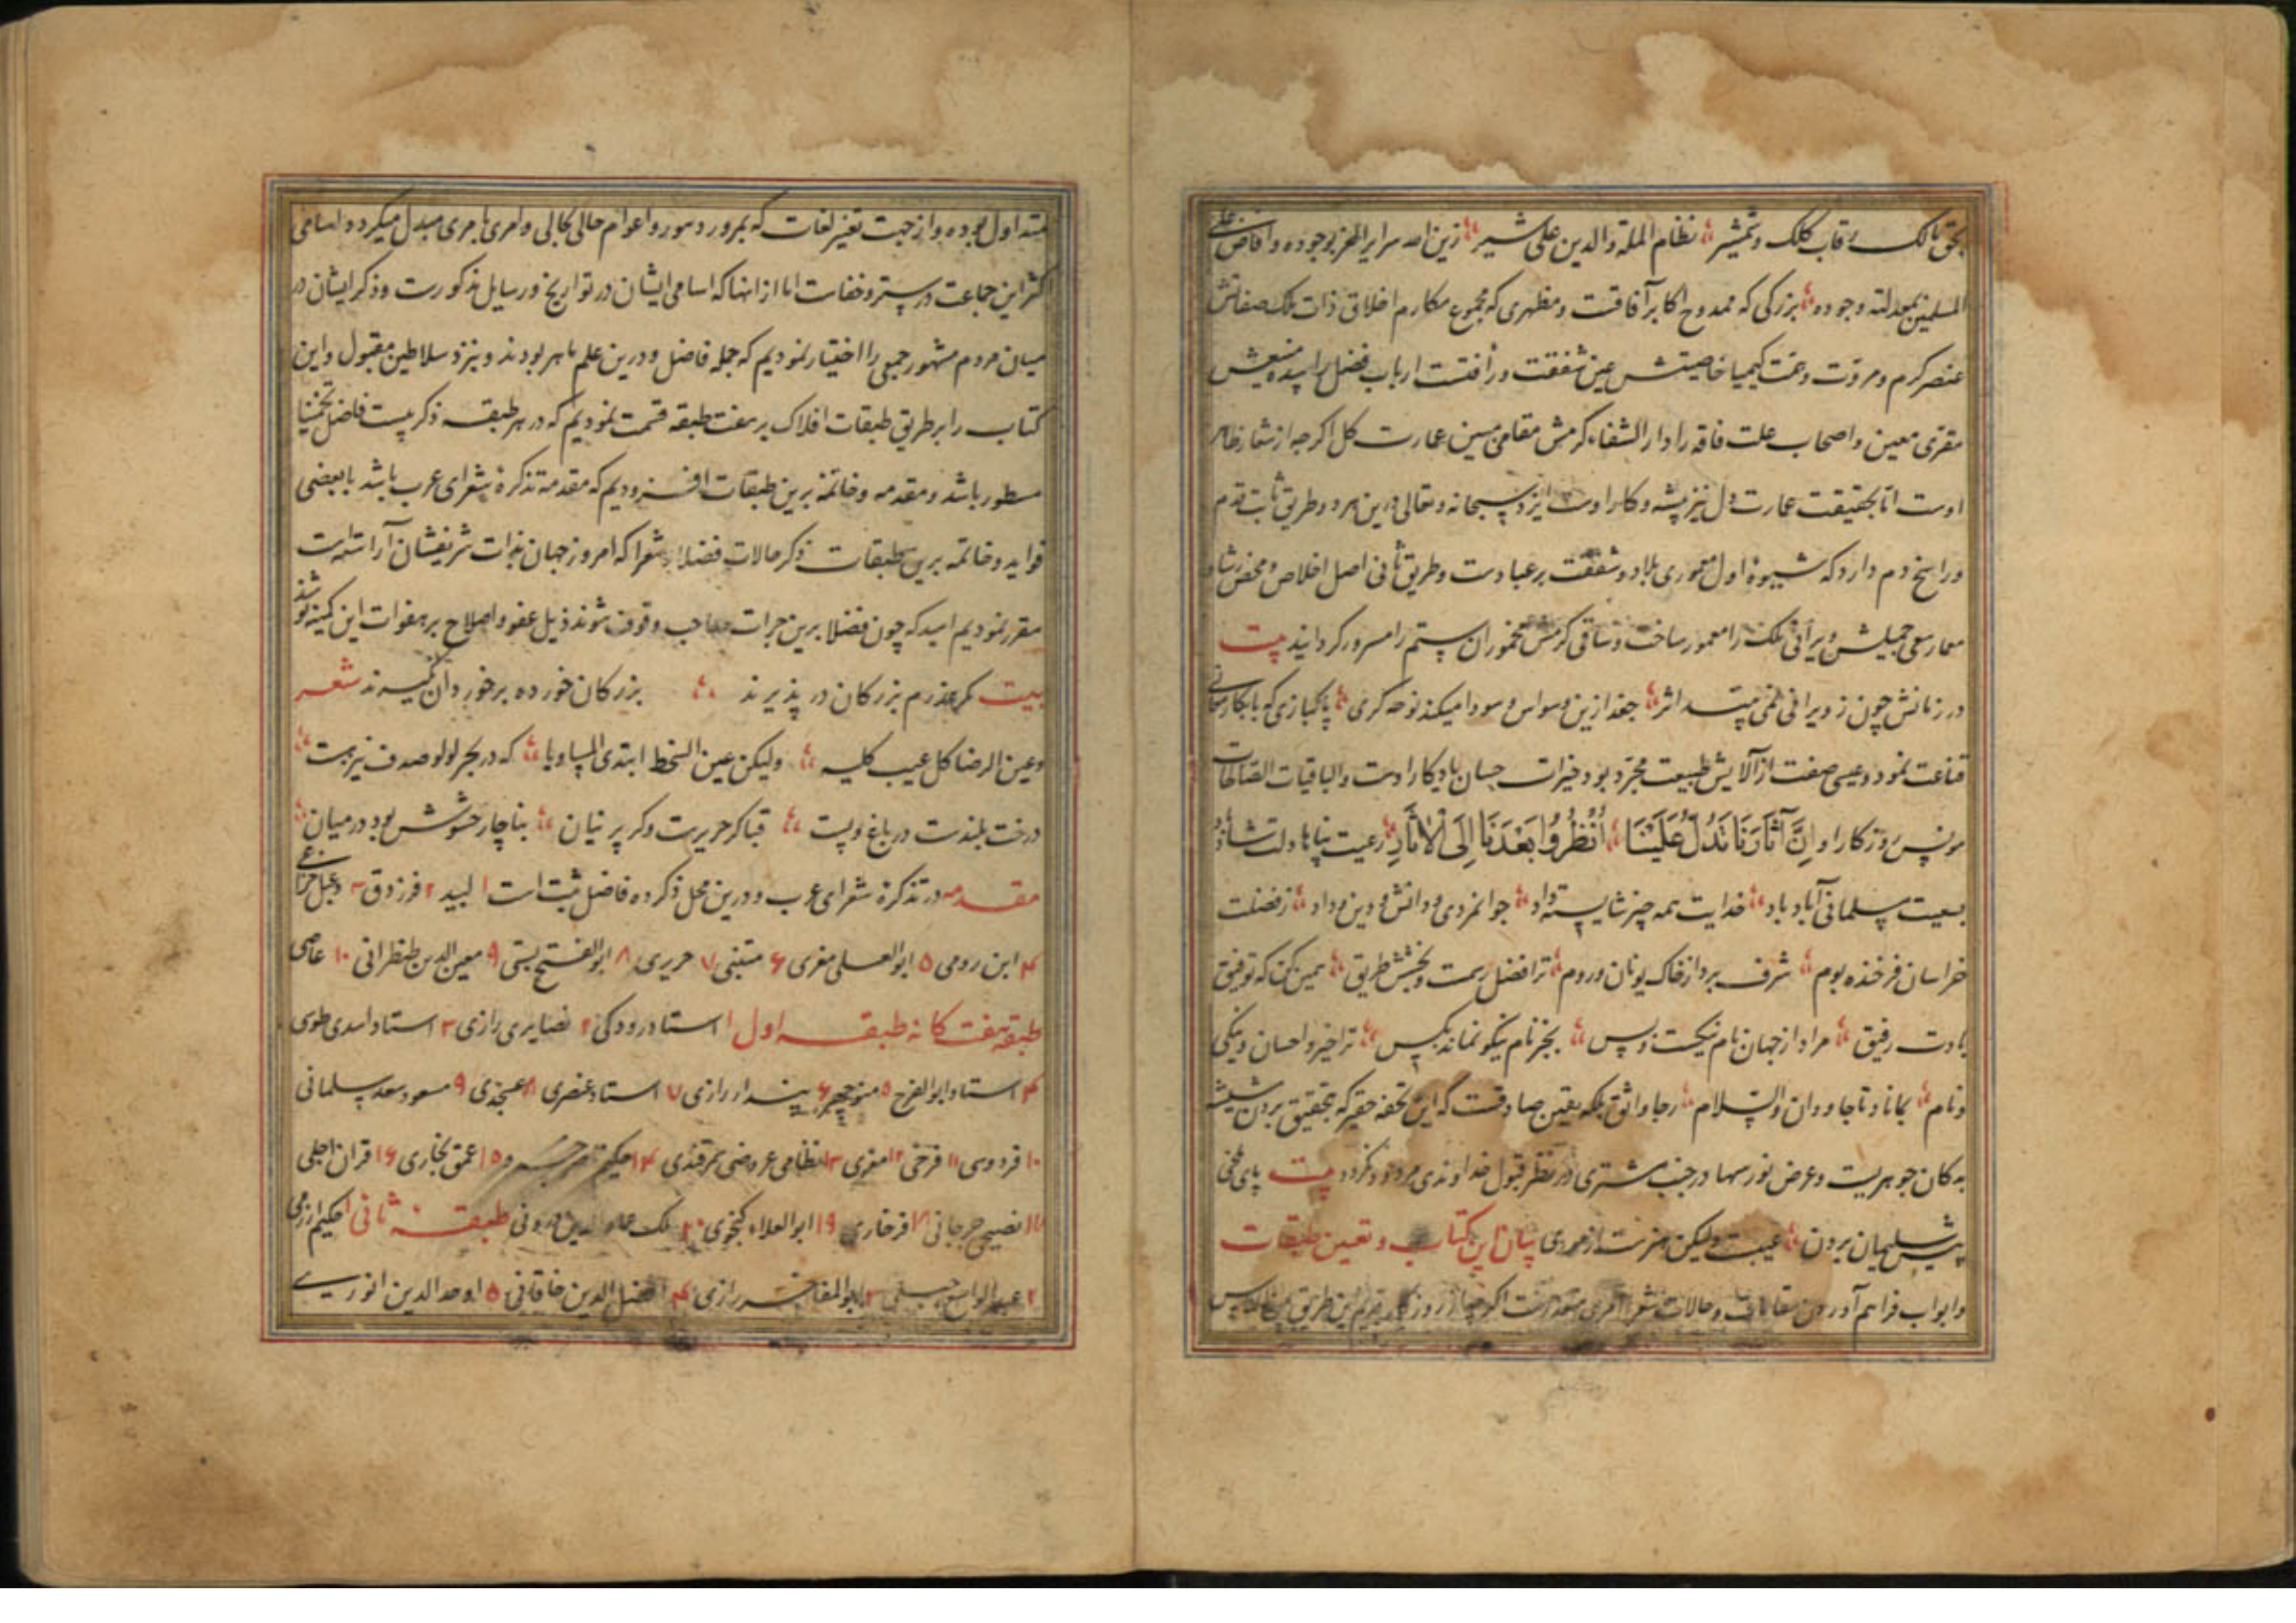 بحق مالک رقاب کلک و شمشیر نظام الملة والدین علی شیر زین الله سرایر العز بوجوده وافاض علی
المسلمین بمعدلته وجوده بزرکی که ممدوح اکابر آفاقست و مظهری که مجموع مکارم اخلاق ذات ملک صفاتش
عنصر کرم و مروت و همت کیمیا خاصیتش عین شفقت و رأفتست ارباب فضل را سده منیعش
مقری معین و اصحاب علت فاقه را دار الشفاء کرمش مقامی مبین عمارت کل اکرچه از شعار ظاهر
اوست اما بحقیقت عمارت دل نیز پیشه و کار اوست ایزد سبحانه و تعالی درین هر دو طریق ثابت قدم
و راسخ دم دارد که شیوهٔ اول معموری بلاد و شفقت بر عبادست و طریق ثانی اصل اخلاص و محض رشاد
معمار سعی جمیلش ویرانی ملک را معمور ساخت و ساقی کرمش مخموران ستم را مسرور کردانید بیت
در زمانش چون ز ویرانی نمی بیند اثر جغد ازین وسواس و سودا میکند نوحه کری پاکبازی که با بکار
قناعت نمود و عیسی صفت از آلایش طبیعت مجرد بود خیرات حسان یادکار اوست والباقیات الصالحات
مونس روزکار او إنّ آثارنا تدلّ علینا أنظروا بعدنا إلی الآثار رعیت پناها دلت شاد
بسعیت مسلمانی آباد باد خدایت همه چیز شایسته داد جوانمردی و دانش و دین و داد ز فضلت
خراسان فرخنده بوم شرف برد از خاک یونان و روم ترا فضل رسمت و بخشش طریق همین کن که توفیق
بادت رفیق مراد از جهان نام نیکست و بس بجز نام نیکو نماند بکس ترا خیر و احسان و نیکی
و نام بماناد تا جاودان والسلام رجا واثق بلکه یقین صادقست که این تحفه حقیر که بتحقیق بردن شیشه
به کان جوهریست و عرض نور سها در جنب مشتری در نظر قبول خداوندی مردود نکردد بیت پای ملخی
پیش سلیمان بردن عیبست ولیکن هنرست از موری بیان این کتاب و تعیین طبقات
و ابواب فراهم آوردن مقامات و حالات شعرا امری متعذرست اکرچه از روزکار قدیم این طریق میان الناس
متداول بوده و از جهت تغیر لغات که بمرور دهور و اعوام حالی بحالی و امری بامری مبدل میکردد اسامی
اکثر این جماعت در ستر و خفاست اما از انها که اسامی ایشان در تواریخ و رسایل مذکورست و ذکر ایشان در
میان مردم مشهور جمعی را اختیار نمودیم که جمله فاضل و درین علم ماهر بودند و نزد سلاطین مقبول و این
کتاب را بر طریق طبقات افلاک بر هفت طبقه قسمت نمودیم که در هر طبقه ذکر بیست فاضل تخمینا
مسطور باشد و مقدمه و خاتمه برین طبقات افزودیم که مقدمه تذکرهٔ شعرای عرب باشد با بعضی
فواید و خاتمه برین طبقات ذکر حالات فضلا و شعرا که امروز جهان بذات شریفشان آراسته است
مقرر نمودیم امید که چون فضلا برین جرات صاحب وقوف شوند ذیل عفو و اصلاح بر هفوات این کمینه پوشند
بیت مکر عذرم بزرکان در پذیرند بزرکان خورده بر خوردان نکیرند شعر
وعین الرضا کل عیب کلیه ولیکن عین السخط ابتدی المساویا که در بحر لولو صدف نیز هست
درخت بلندست در باغ و پست قبا کر حریرست و کر پرنیان بناچار حشوش بود در میان
مقدمه در تذکرهٔ شعرای عرب و درین محل ذکر ده فاضل ثبت است ۱ لبید ۲ فرزدق ۳ دعبل خزاعی
۴ ابن رومی ۵ ابو العلی معری ۶ متنبی ۷ حریری ۸ ابو الفتح بستی ۹ معین الدین طنطرانی ۱۰
طبقه هفت کانه طبقه اول ۱ استاد رودکی ۲ غضایری رازی ۳ استاد اسدی طوسی
۴ استاد ابو الفرح ۵ منوچهر ۶ پندار رازی ۷ استاد عنصری ۸ عسجدی ۹ مسعود سعد سلمانی
۱۰ فردوسی ۱۱ فرخی ۱۲ معزی ۱۳ نظامی عروضی سمرقندی ۱۴ حکیم ناصر خسرو ۱۵ عمق بخاری ۱۶ قران اجلی
۱۷ فصیحی جرجانی ۱۸ فرخاری ۱۹ ابو العلاء کنجوی ۲۰ ملک عماد الدین زوزنی طبقه ثانی ۱ حکیم ازرقی
۲ عبد الواسع جبلی ۳ ابو المفاخر رازی ۴ افضل الدین خاقانی ۵ اوحد الدین انوری